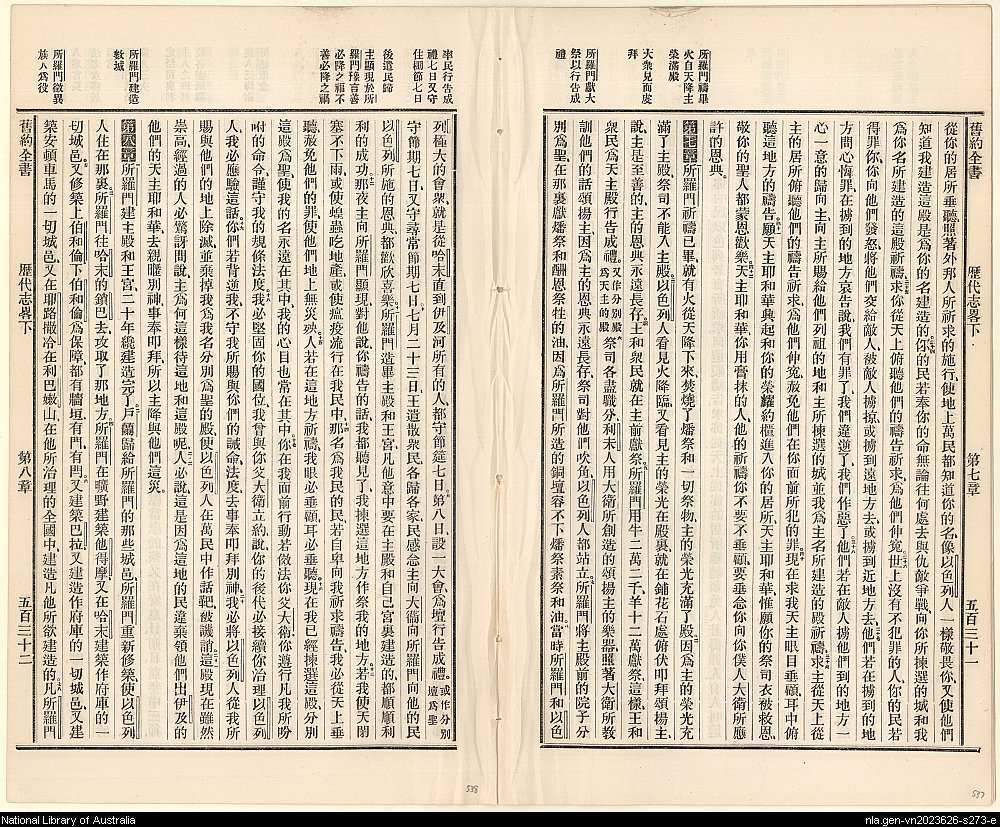 舊約全書 歷代志畧下 第七章 五百三十一
從你的居所垂聽、照著外邦人所祈求的施行、使地上萬民都知道你的名、像以色列人一樣敬畏你、又使他們
知道我建造這殿是爲你的名建造的、你的民若奉你的命、無論往何處去與仇敵爭戰、向你所揀選的城和我
爲你名所建造的這殿祈禱、求你從天上俯聽他們的禱告祈求、爲他們伸寃、世上沒有不犯罪的人、你的民若
得罪你、你向他們發怒、將他們交給敵人、被敵人擄掠、或擄到遠地方去、或擄到近地方去、他們若在擄到的地
方、間心悔罪、在擄到的地方哀告說、我們有罪了、我們違逆了、我們作惡了、他們若在敵人擄他們到的地方、一
心一意的歸向主、向主所賜給他們列祖的地、和主所揀選的城、並我爲主名所建造的殿祈禱、求主從天上從
主的居所俯聽他們的禱告祈求、爲他們伸寃、赦免他們在你面前所犯的罪、現在求我天主眼目垂顧、耳中俯
聽這地方的禱告、願天主耶和華興起、和你的榮耀約櫃進入你的居所、天主耶和華、惟願你的祭司衣被救恩、
敬你的聖人都蒙恩歡樂、天主耶和華、你用膏抹的人、他的祈禱你不要不垂顧、要垂念你向你僕人大衛所應
許的恩典。
所羅門禱畢火自天降主榮滿殿
第七章所羅門祈禱已畢、就有火從天降下來、焚燒了燔祭和一切祭物、主的榮光充滿了殿、因爲主的榮光充
滿了主殿、祭司不能入主殿、以色列人看見火降臨、又看見主的榮光在殿裏、就在鋪花石處俯伏叩拜、頌揚主、
大衆見而虔拜
說、主是至善的、主的恩典永遠長存、王和衆民就在主前獻祭、所羅門用牛二萬二千、羊十二萬獻祭、這樣王和
衆民爲天主殿行告成禮。又作分別殿爲天主的殿祭司各盡職分、利未人用大衛所創造的頌揚主的樂器、照著大衛所教
所羅門獻大祭以行告成禮
訓他們的話頌揚主、因爲主的恩典永遠長存、祭司對他們吹角、以色列人都站立、所羅門將主殿前的院子分
別爲聖、在那裏獻燔祭和酬恩祭牲的油、因爲所羅門所造的銅壇、容不下燔祭素祭和油、當時所羅門和以色
率民行告成禮七日又守住棚節七日
列極大的會衆、就是從哈末直到伊及河所有的人、都守節筵七日、第八日設一大會、爲壇行告成禮。或作分別壇爲聖
守節期七日、又守尋常節期七日、七月二十三日、王遣散衆民各歸各家、民感念主向大衛向所羅門向他的民
後遣民歸
以色列所施的恩典、都歡欣喜樂、所羅門造畢主殿和王宮、凡他意中要在主殿和自己宮裏建造的、都順順利
主顯現於所羅門豫言善必降之福不善必降之禍
利的成功、那夜主向所羅門顯現、對他說、你禱告的話、我都聽見了、我揀選這地方、作祭我的地方、若我使天閉
塞不下雨、或使蝗蟲吃地產、或使瘟疫流行在我民中、那名爲我民的民、若自卑向我祈求禱告、我必從天上垂
聽、赦免他們的罪、使他們地上無災殃、人若在這地方祈禱、我眼必垂顧、耳必垂聽、現在我已經揀選這殿、分別
這殿爲聖、使我的名永遠在其中、我的心目也常在其中、你在我面前行動、若倣法你父大衛、你遵行凡我所吩
咐的命令、謹守我的規條法度、我必堅固你的國位、我曾與你父大衛立約說、你的後代必接續你治理以色列
人、我必應驗這話、你們若背逆我、不守我所賜與你們的誡命法度、去事奉叩拜別神、我必將以色列人從我所
賜與他們的地上除滅、並棄掉我爲我名分別爲聖的殿、使以色列人在萬民中作話靶、被譏誚、這殿現在雖然
崇高、經過的人必驚訝問說、主爲何這樣待這地和這殿呢、人必說、這是因爲這地的民違棄領他們出伊及的
他們的天主耶和華、去親暱別神、事奉叩拜、所以主降與他們這災。
所羅門建造數城
第八章所羅門建主殿和王宮、二十年纔建造完了、戶蘭歸給所羅門的那些城邑、所羅門重新修築、使以色列
人住在那裏、所羅門往哈末的鎖巴去、攻取了那地方、所羅門在曠野建築他得摩、又在哈末建築作府庫的一
切城邑、又修築上伯和倫、下伯和倫、爲保障、都有牆垣、有門、有閂、又建築巴拉、又建造作府庫的一切城邑、又建
所羅門徵異族人爲役
築安頓車馬的一切城邑、又在耶路撒冷、在利巴嫩山、在他所治理的全國中、建造凡他所欲建造的、凡所羅門
舊約全書 歷代志畧下 第八章 五百三十二
538
537
National Library of Australia
nla.gen-vn2023626-s273-e